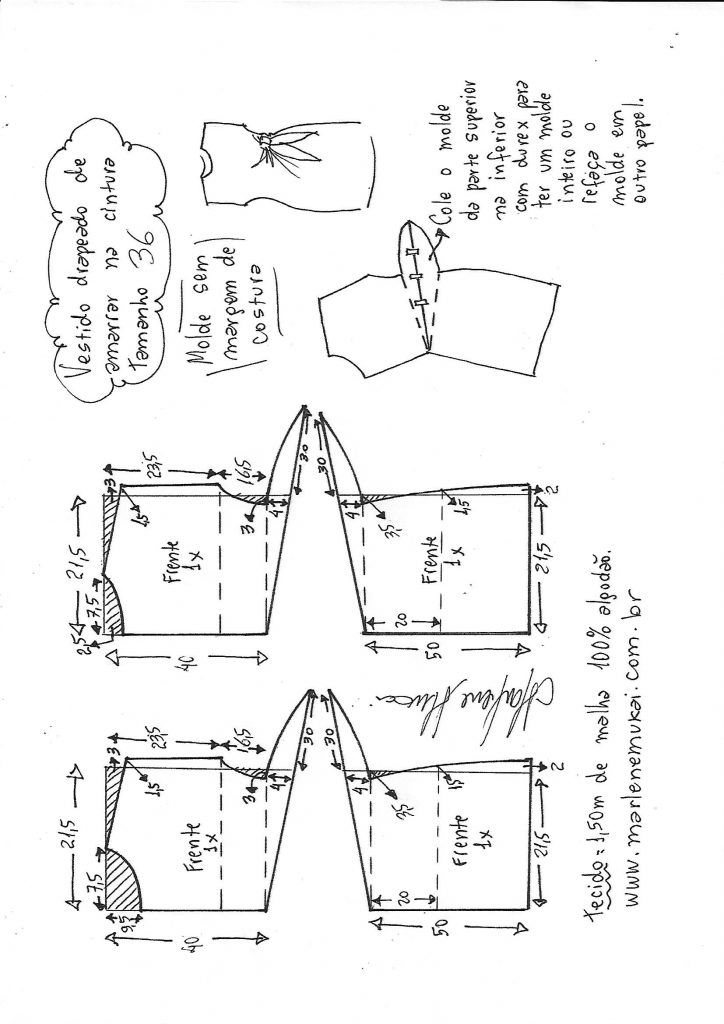 Vestido drapeado de
amarrar na cintura
Tamanho 36
Molde sem
margem de
costura
Cole o molde
da parte superior
na inferior
com durex para
ter um molde
inteiro ou
refaça o
molde em
outro papel.
21,5
7,5
2,5
3
23,5
16,5
1,5
Frente
1x
3
4
30
40
30
4
3,5
Frente
1x
1,5
2
20
21,5
50
21,5
7,5
9,5
3
23,5
16,5
1,5
Frente
1x
3
4
30
40
30
4
3,5
Frente
1x
1,5
2
20
21,5
50
Marlene Mukai
tecido = 1,50m de malha 100% algodão.
www.marlenemukai.com.br